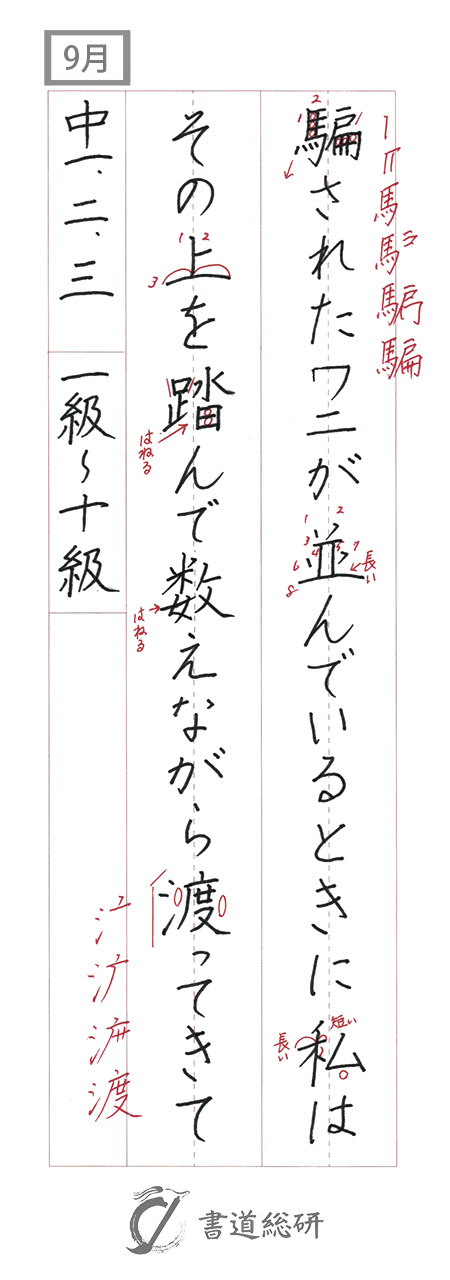 9月
騙されたワニが並んでいるときに私は
その上を踏んで数えながら渡ってきて
中一、二、三
一級〜十級
1 2
長い
1 2
3 4 5 7
6
8
短い
長い
1 2
3
はねる
はねる
書道総研